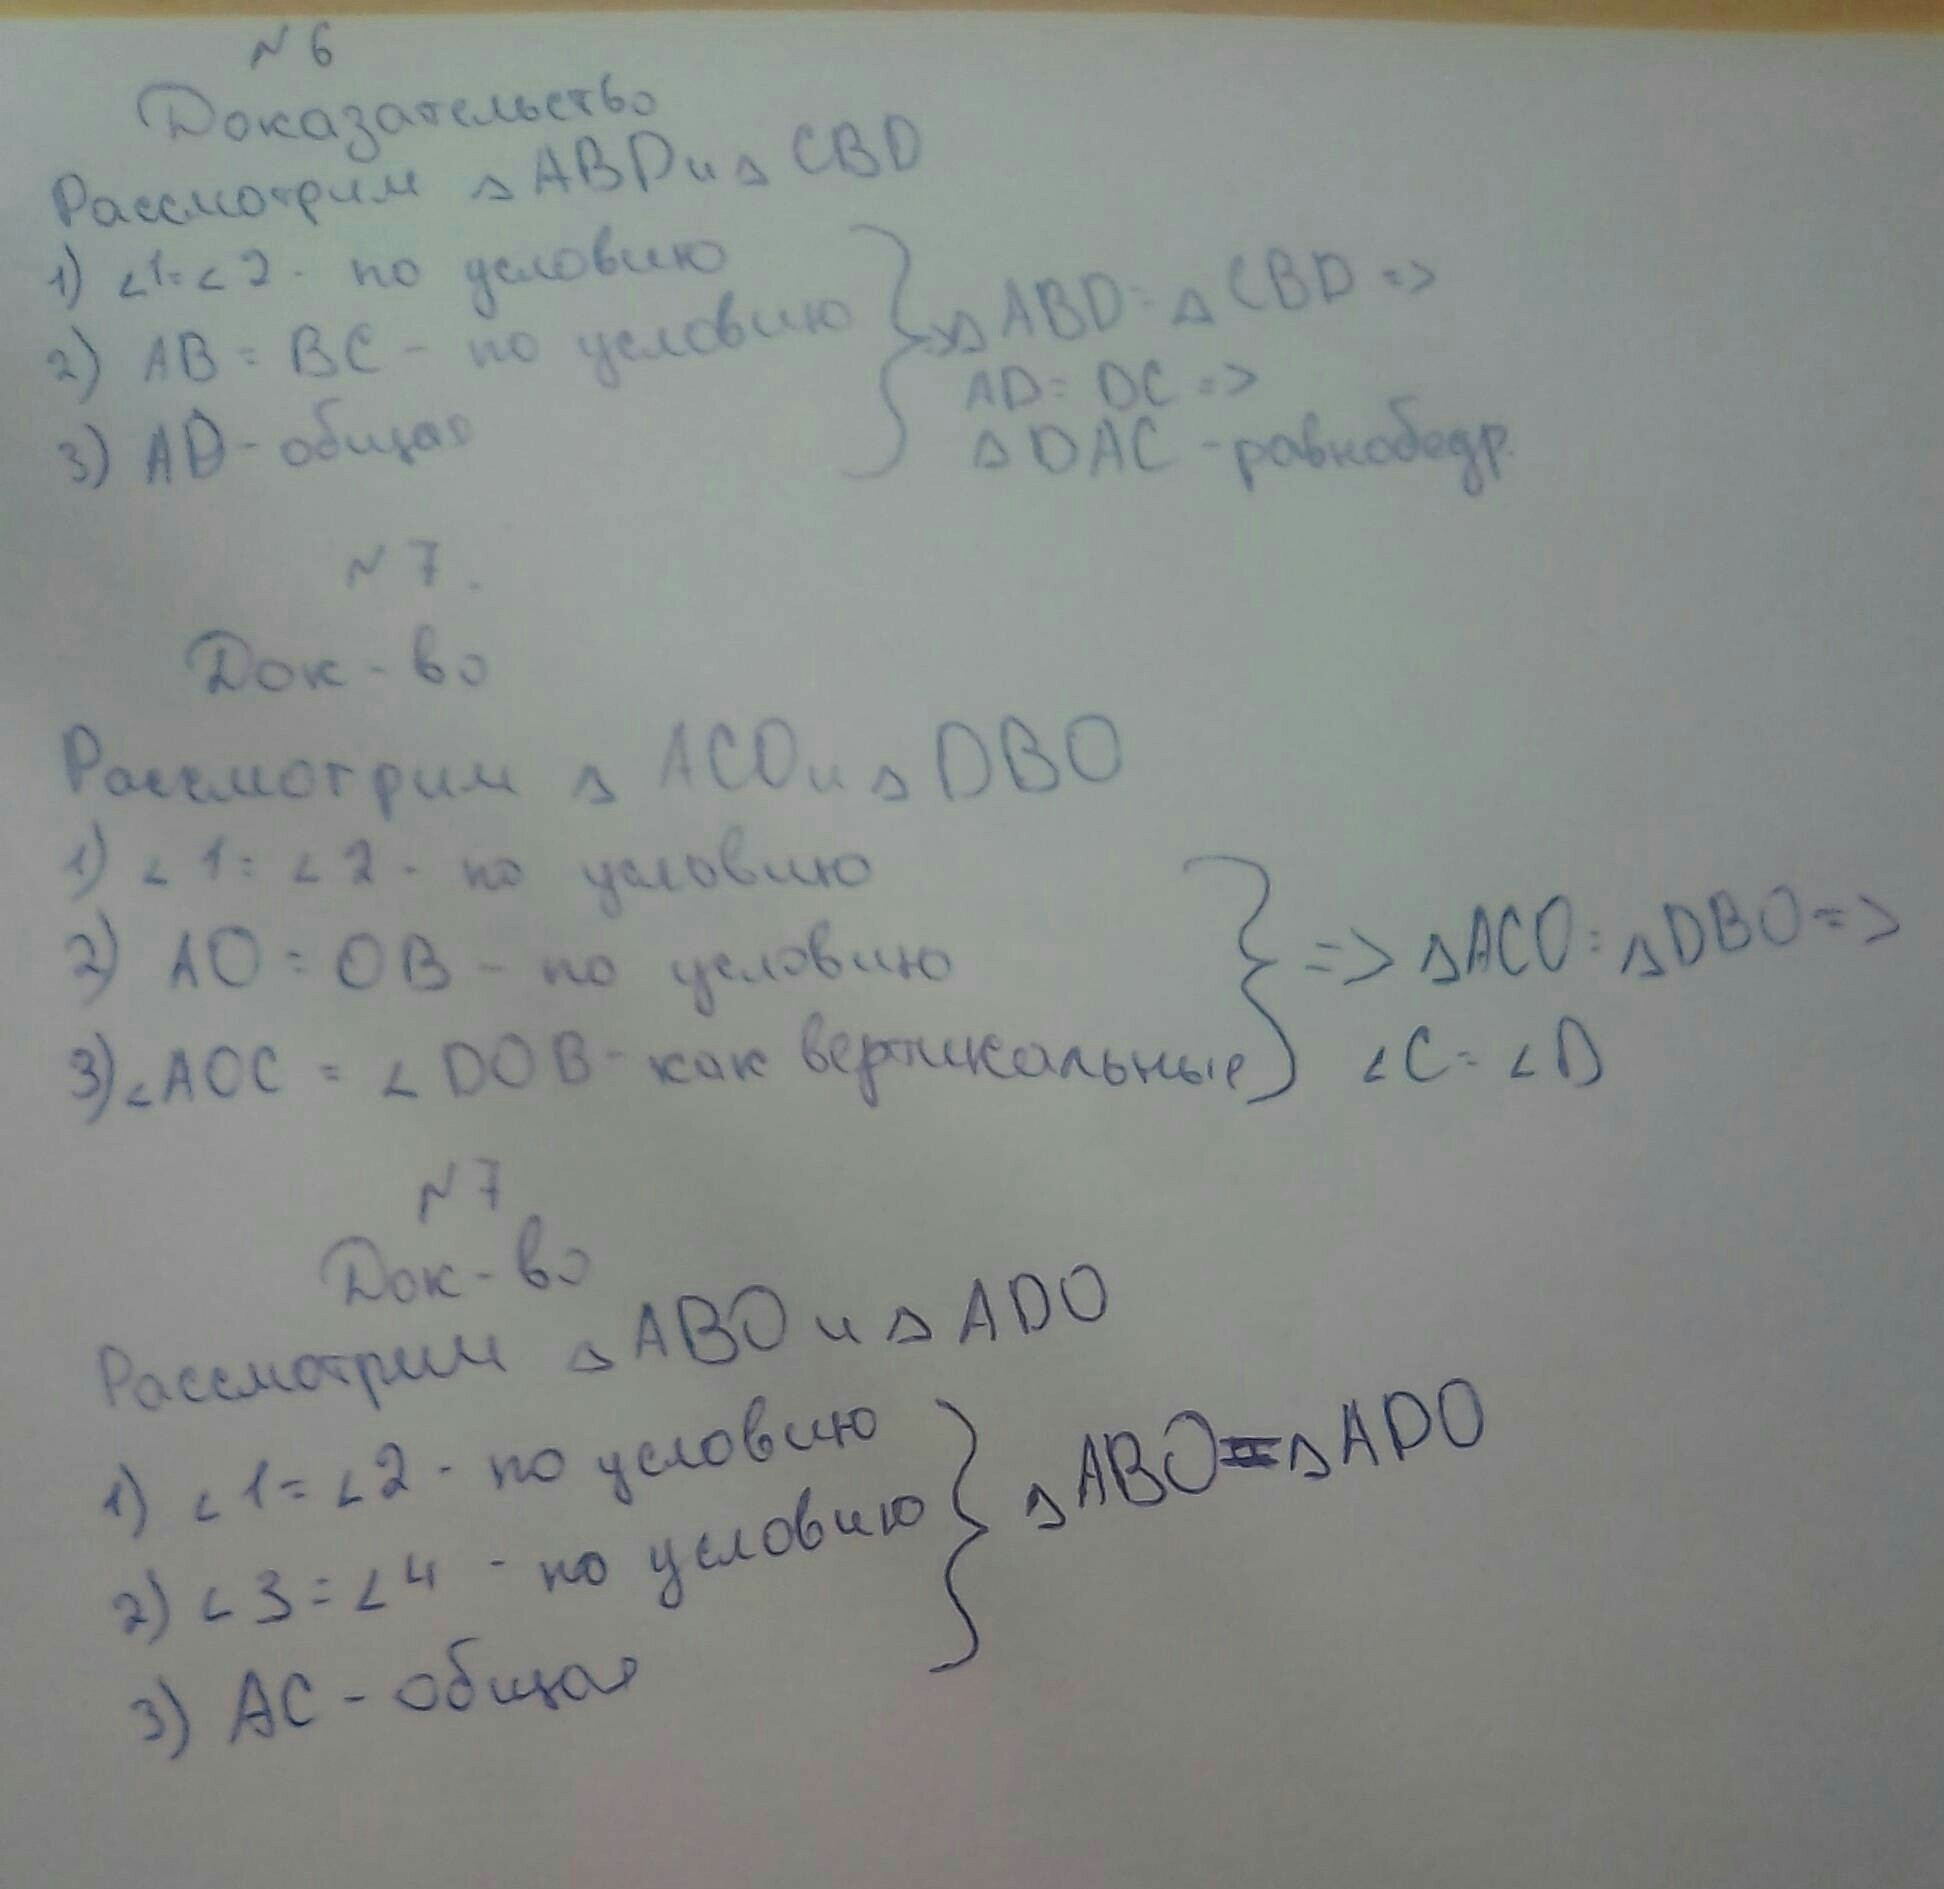 № 6
Доказательство
Рассмотрим △ ABD и △ CBD
1) ∠1=∠2 - по условию
2) AB = BC - по условию
3) AD - общая
=> △ ABD = △ CBD =>
AD = DC =>
△ DAC - равнобедр.
№ 7.
Док-во
Рассмотрим △ ACO и △ DBO
1) ∠1=∠2 - по условию
2) AO = OB - по условию
3) ∠AOC = ∠DOB - как вертикальные
=> △ACO = △DBO =>
∠C = ∠D
№ 7
Док-во
Рассмотрим △ ABO и △ ADO
1) ∠1=∠2 - по условию
2) ∠3=∠4 - по условию
3) AC - общая
△ABO = △ADO